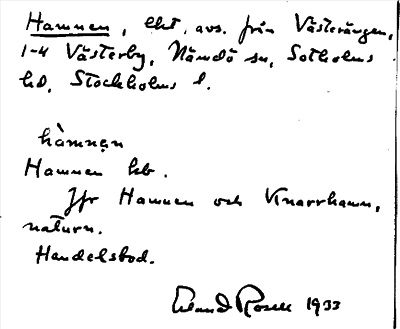 Hamnen, lht, avs. från Västerängen,
1-4 Västerby, Nämdö sn, Sotholms
hd, Stockholms l.
hàmnęn
Hamnen hb.
Jfr Hamnen och Knarrhamn,
naturn.
Handelsbod.
Erland Rosell 1933